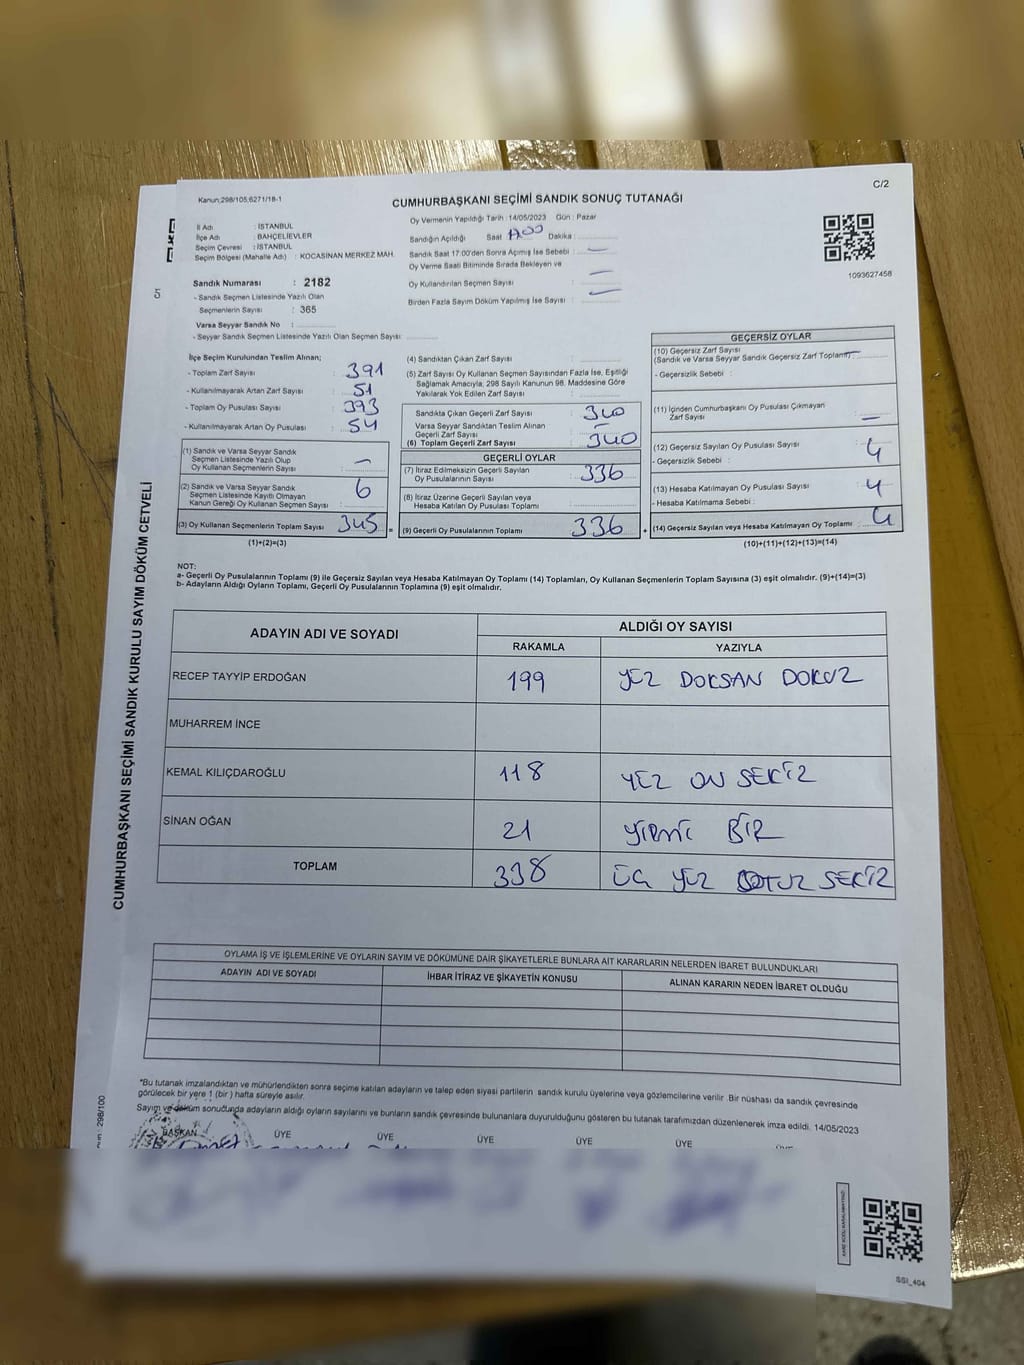 C/2
Kanun;298/105;6271/18-1
CUMHURBAŞKANI SEÇİMİ SANDIK SONUÇ TUTANAĞI
İl Adı : İSTANBUL
İlçe Adı : BAHÇELİEVLER
Seçim Çevresi : İSTANBUL
Seçim Bölgesi (Mahalle Adı) : KOCASİNAN MERKEZ MAH.
Oy Vermenin Yapıldığı Tarih : 14/05/2023 Gün : Pazar
Sandığın Açıldığı Saat 17.00 Dakika :
Sandık Saat 17:00'den Sonra Açımış İse Sebebi : —
Oy Verme Saati Bitiminde Sırada Bekleyen ve
Oy Kullandırılan Seçmen Sayısı : —
Birden Fazla Sayım Döküm Yapılmış İse Sayısı : —
1093627458
Sandık Numarası : 2182
- Sandık Seçmen Listesinde Yazılı Olan
Seçmenlerin Sayısı : 365
Varsa Seyyar Sandık No :
- Seyyar Sandık Seçmen Listesinde Yazılı Olan Seçmen Sayısı :
İlçe Seçim Kurulundan Teslim Alınan;
- Toplam Zarf Sayısı : 391
- Kullanılmayarak Artan Zarf Sayısı : 51
- Toplam Oy Pusulası Sayısı : 393
- Kullanılmayarak Artan Oy Pusulası : 54
(1) Sandık ve Varsa Seyyar Sandık
Seçmen Listesinde Yazılı Olup
Oy Kullanan Seçmenlerin Sayısı : —
(2) Sandık ve Varsa Seyyar Sandık
Seçmen Listesinde Kayıtlı Olmayan
Kanun Gereği Oy Kullanan Seçmen Sayısı : 6
(3) Oy Kullanan Seçmenlerin Toplam Sayısı : 345 =
(1)+(2)=(3)
(4) Sandıktan Çıkan Zarf Sayısı :
(5) Zarf Sayısı Oy Kullanan Seçmen Sayısından Fazla İse, Eşitliği
Sağlamak Amacıyla, 298 Sayılı Kanunun 98. Maddesine Göre
Yakılarak Yok Edilen Zarf Sayısı :
Sandıkta Çıkan Geçerli Zarf Sayısı : 340
Varsa Seyyar Sandıktan Teslim Alınan
Geçerli Zarf Sayısı : —
(6) Toplam Geçerli Zarf Sayısı : 340
GEÇERLİ OYLAR
(7) İtiraz Edilmeksizin Geçerli Sayılan
Oy Pusulalarının Sayısı : 336
(8) İtiraz Üzerine Geçerli Sayılan veya
Hesaba Katılan Oy Pusulası Toplamı :
(9) Geçerli Oy Pusulalarının Toplamı 336 +
GEÇERSİZ OYLAR
(10) Geçersiz Zarf Sayısı
(Sandık ve Varsa Seyyar Sandık Geçersiz Zarf Toplamı) —
- Geçersizlik Sebebi :
(11) İçinden Cumhurbaşkanı Oy Pusulası Çıkmayan
Zarf Sayısı : —
(12) Geçersiz Sayılan Oy Pusulası Sayısı : 4
- Geçersizlik Sebebi :
(13) Hesaba Katılmayan Oy Pusulası Sayısı : 4
- Hesaba Katılmama Sebebi :
(14) Geçersiz Sayılan veya Hesaba Katılmayan Oy Toplamı : 4
(10)+(11)+(12)+(13)=(14)
NOT:
a- Geçerli Oy Pusulalarının Toplamı (9) ile Geçersiz Sayılan veya Hesaba Katılmayan Oy Toplamı (14) Toplamları, Oy Kullanan Seçmenlerin Toplam Sayısına (3) eşit olmalıdır. (9)+(14)=(3)
b- Adayların Aldığı Oyların Toplamı, Geçerli Oy Pusulalarının Toplamına (9) eşit olmalıdır.
CUMHURBAŞKANI SEÇİMİ SANDIK KURULU SAYIM DÖKÜM CETVELİ
ADAYIN ADI VE SOYADI
ALDIĞI OY SAYISI
RAKAMLA YAZIYLA
RECEP TAYYİP ERDOĞAN 199 YÜZ DOKSAN DOKUZ
MUHARREM İNCE
KEMAL KILIÇDAROĞLU 118 YÜZ ON SEKİZ
SİNAN OĞAN 21 YİRMİ BİR
TOPLAM 338 ÜÇ YÜZ OTUZ SEKİZ
OYLAMA İŞ VE İŞLEMLERİNE VE OYLARIN SAYIM VE DÖKÜMÜNE DAİR ŞİKAYETLERLE BUNLARA AİT KARARLARIN NELERDEN İBARET BULUNDUKLARI
ADAYIN ADI VE SOYADI İHBAR İTİRAZ VE ŞİKAYETİN KONUSU ALINAN KARARIN NEDEN İBARET OLDUĞU
*Bu tutanak imzalandıktan ve mühürlendikten sonra seçime katılan adayların ve talep eden siyasi partilerin sandık kurulu üyelerine veya gözlemcilerine verilir .Bir nüshası da sandık çevresinde
görülecek bir yere 1 (bir ) hafta süreyle asılır.
Sayım ve döküm sonucunda adayların aldığı oyların sayılarını ve bunların sandık çevresinde bulunanlara duyurulduğunu gösteren bu tutanak tarafımızdan düzenlenerek imza edildi. 14/05/2023
BAŞKAN ÜYE ÜYE ÜYE ÜYE ÜYE
298/100
SSİ_404